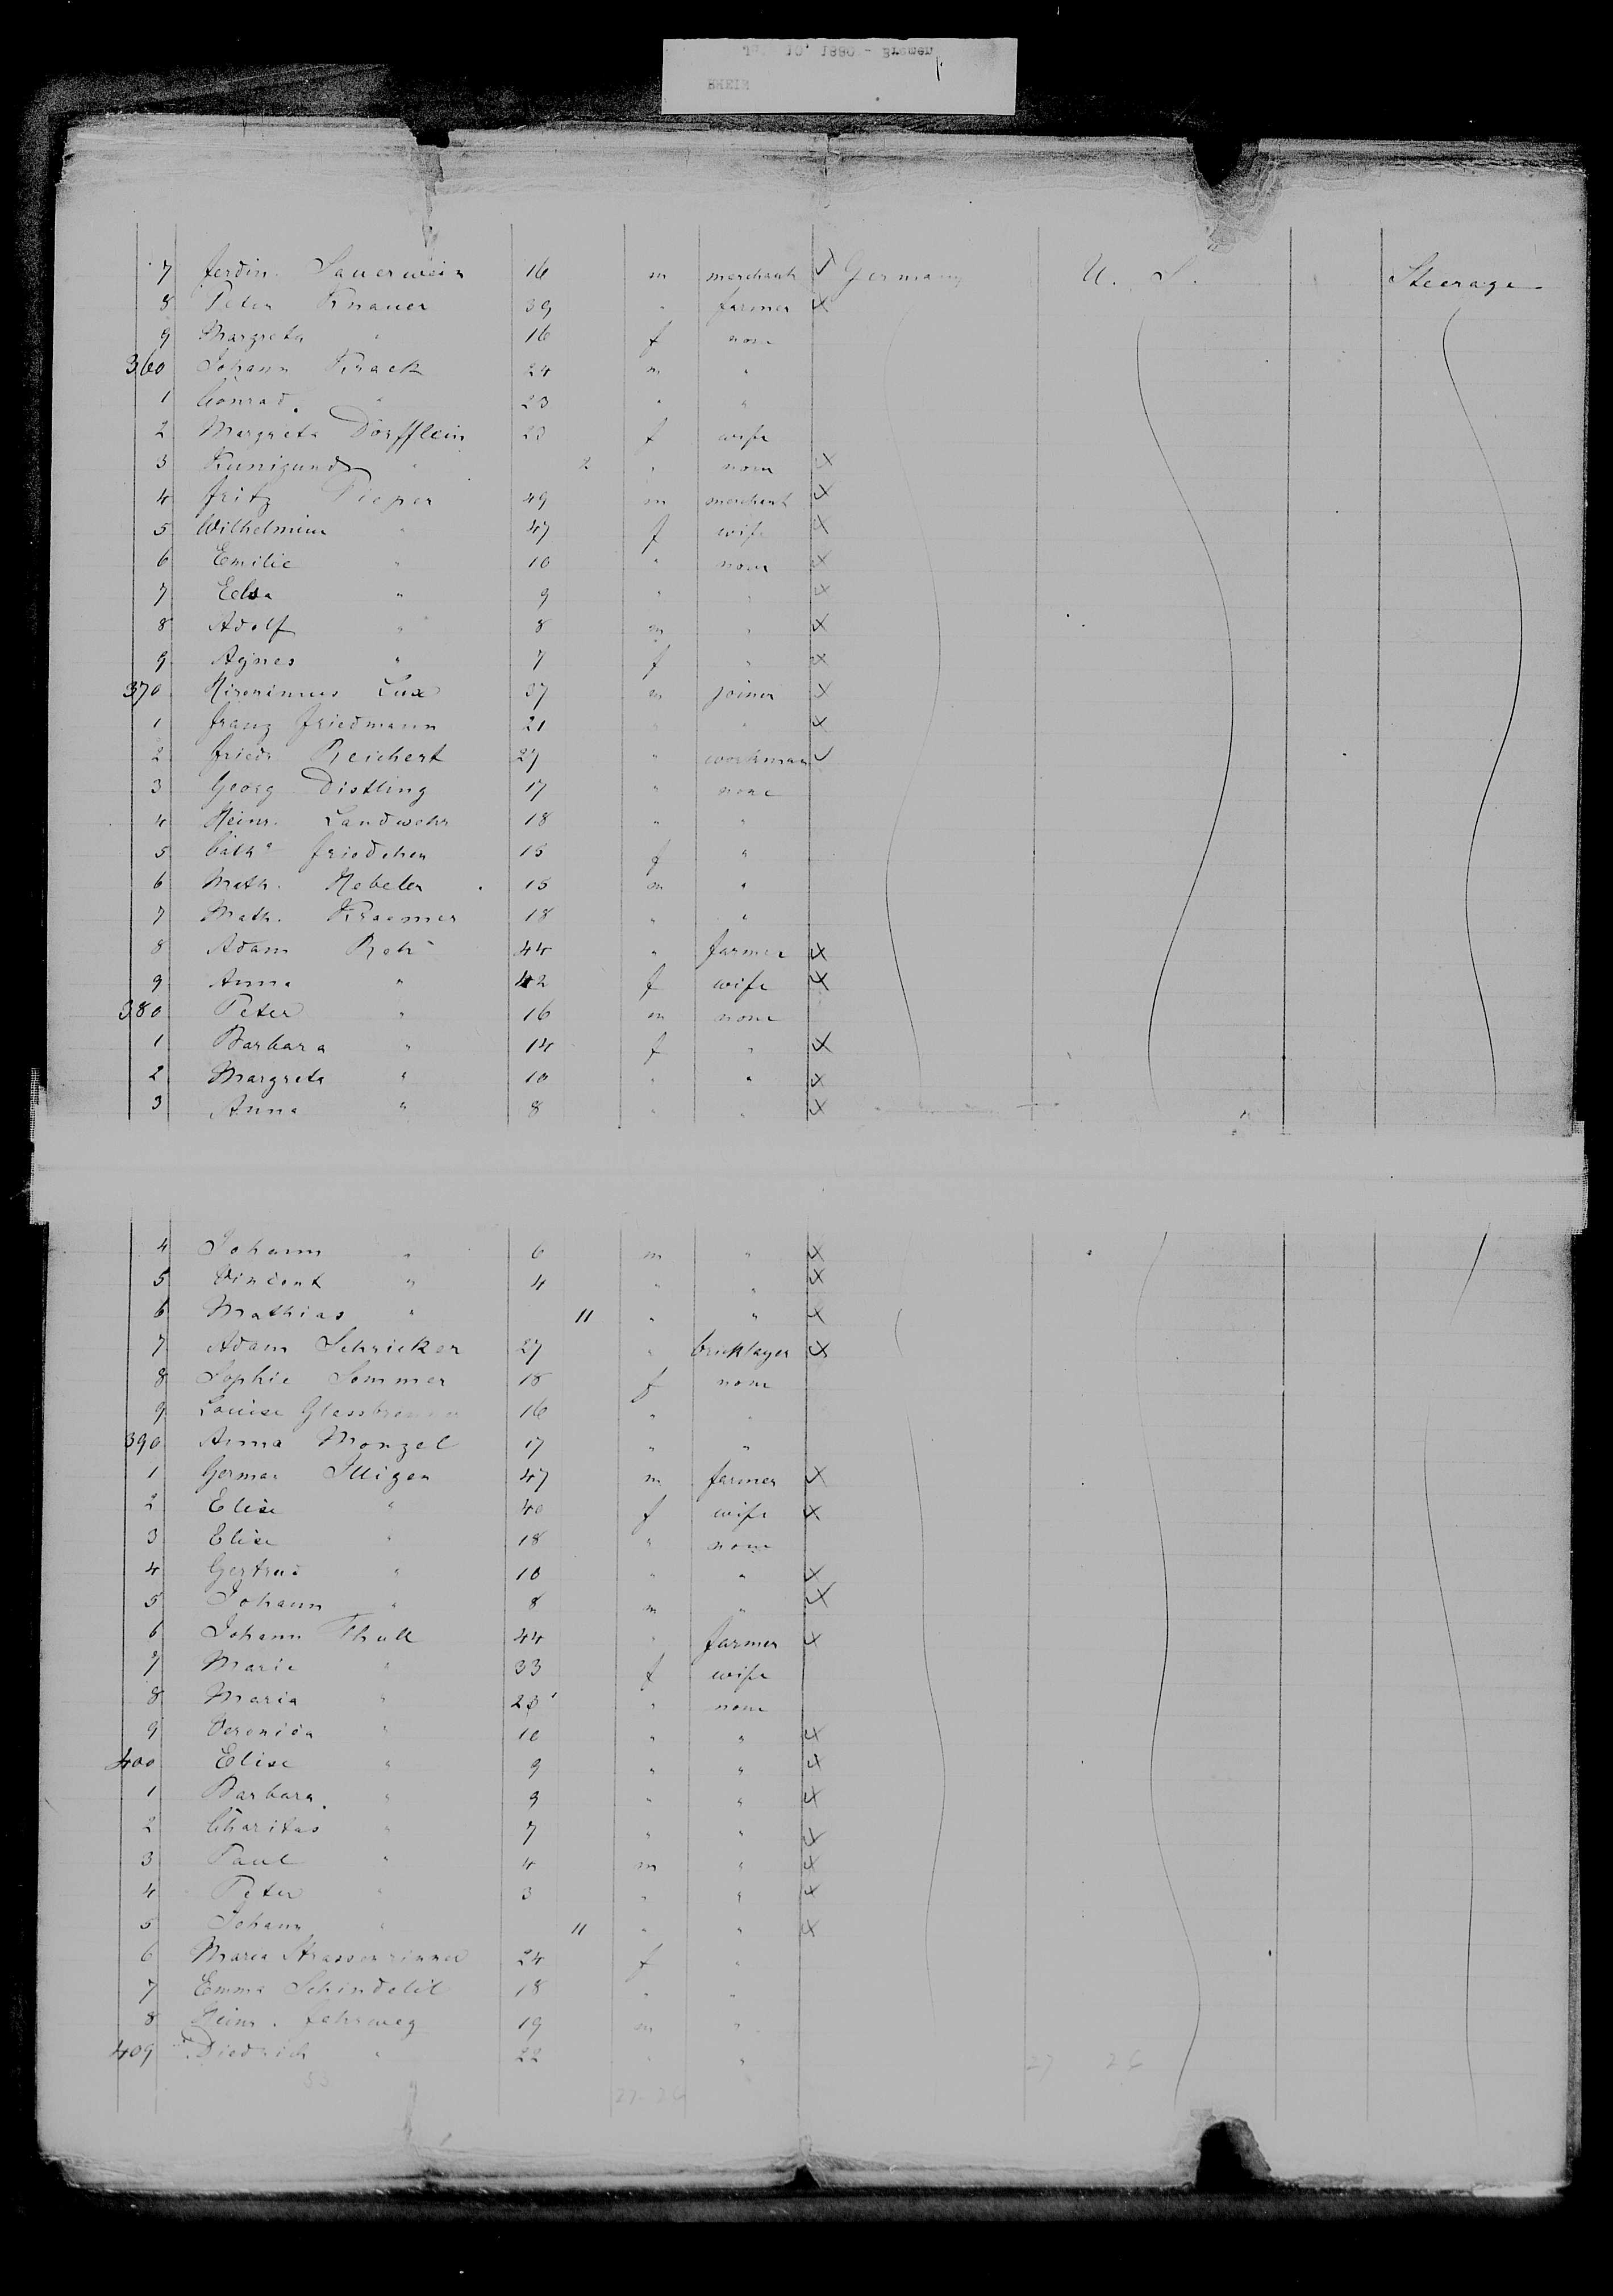 10, 1880 - Bremen
RHEIN
7 Ferdin. Sauerwein 16 m merchant Germany U. S. Steerage
8 Peter Knauer 39 " farmer
9 Margreta " 16 f none
360 Johann Krack 24 m "
1 Conrad " 23 " "
2 Margreta Dörfflein 23 f wife
3 Kunigunde " 2 " none
4 Fritz Pieper 49 m merchant
5 Wilhelmine " 47 f wife
6 Emilie " 10 " none
7 Elsa " 9 " "
8 Adolf " 8 m "
9 Agnes " 7 f "
370 Hironimus Lux 37 m joiner
1 Franz Friedmann 21 " "
2 Friedr Reichert 27 " workman
3 Georg Distling 17 " none
4 Heinr. Landwehr 18 " "
5 Cathe Friedchen 15 f "
6 Math. Hebeler 15 m "
7 Math. Kraemer 18 " "
8 Adam Roh 44 " farmer
9 Anna " 42 f wife
380 Peter " 16 m none
1 Barbara " 14 f "
2 Margreta " 10 " "
3 Anna " 8 " "
4 Johann " 6 m "
5 Vincent " 4 " "
6 Mathias " 11 " "
7 Adam Schricker 27 " bricklayer
8 Sophie Sommer 18 f none
9 Louise Glassbrenner 16 " "
390 Anna Monzel 17 " "
1 German Illigen 47 m farmer
2 Elise " 40 f wife
3 Elise " 18 " none
4 Gertrud " 10 " "
5 Johann " 8 m "
6 Johann Thull 44 " farmer
7 Marie " 33 f wife
8 Maria " none
9 Veronica " 10 " "
400 Elise " 9 " "
1 Barbara " 9 " "
2 Charitas " 7 " "
3 Paul " 4 m "
4 Peter " 3 " "
5 Johann " 11 " "
6 Maria 24 f "
7 Emma 18 " "
8 Heinr. Fehrweg 19 m "
409 Diedrich " 22 " " 27 26
53 27-26